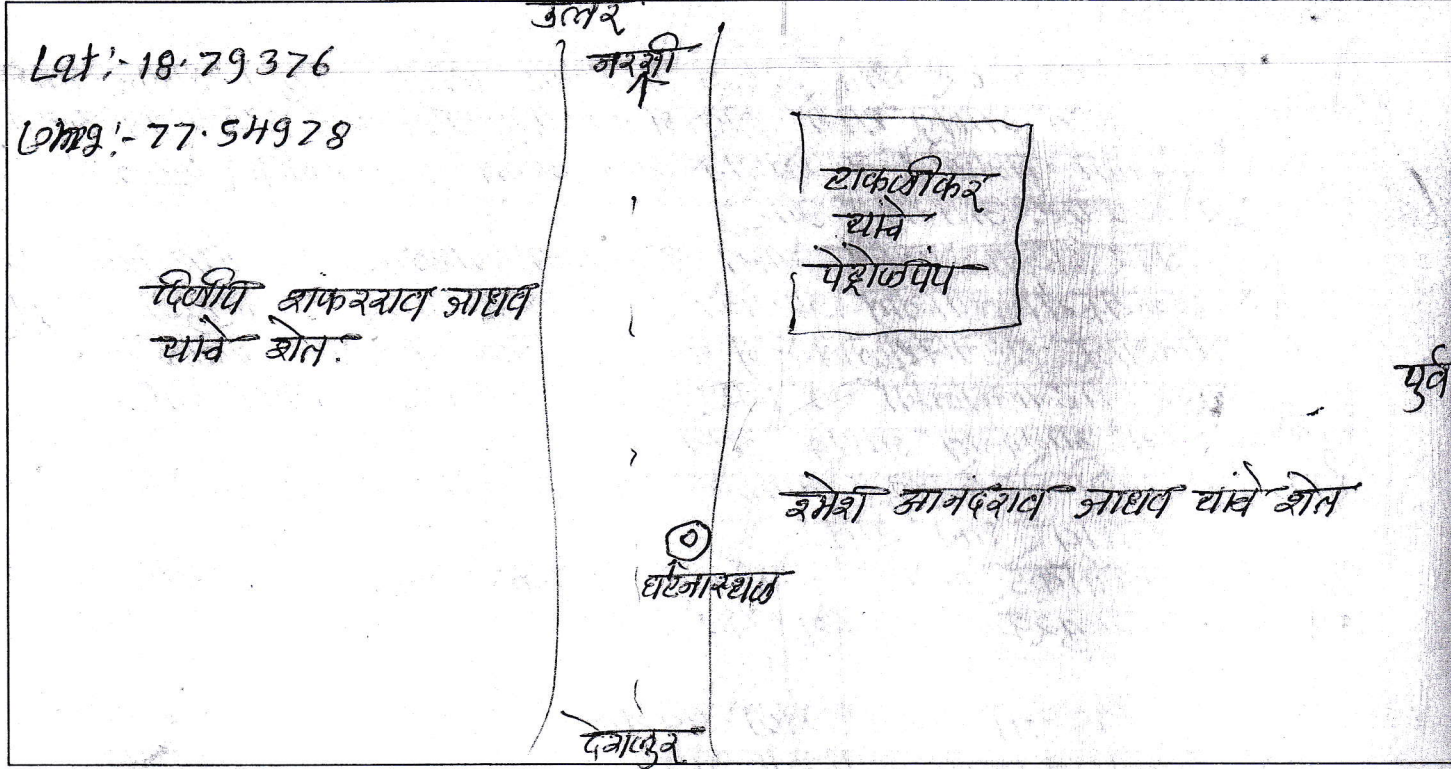 उत्तर
Lat:- 18.79376
Long:- 77.54978
नरसी
टाकळीकर
यांचे
पेट्रोळपंप
दिलीप शंकरराव जाधव
यांचे शेत.
पुर्व
रमेश आनंदराव जाधव यांचे शेत
घटनास्थळ
देगलुर